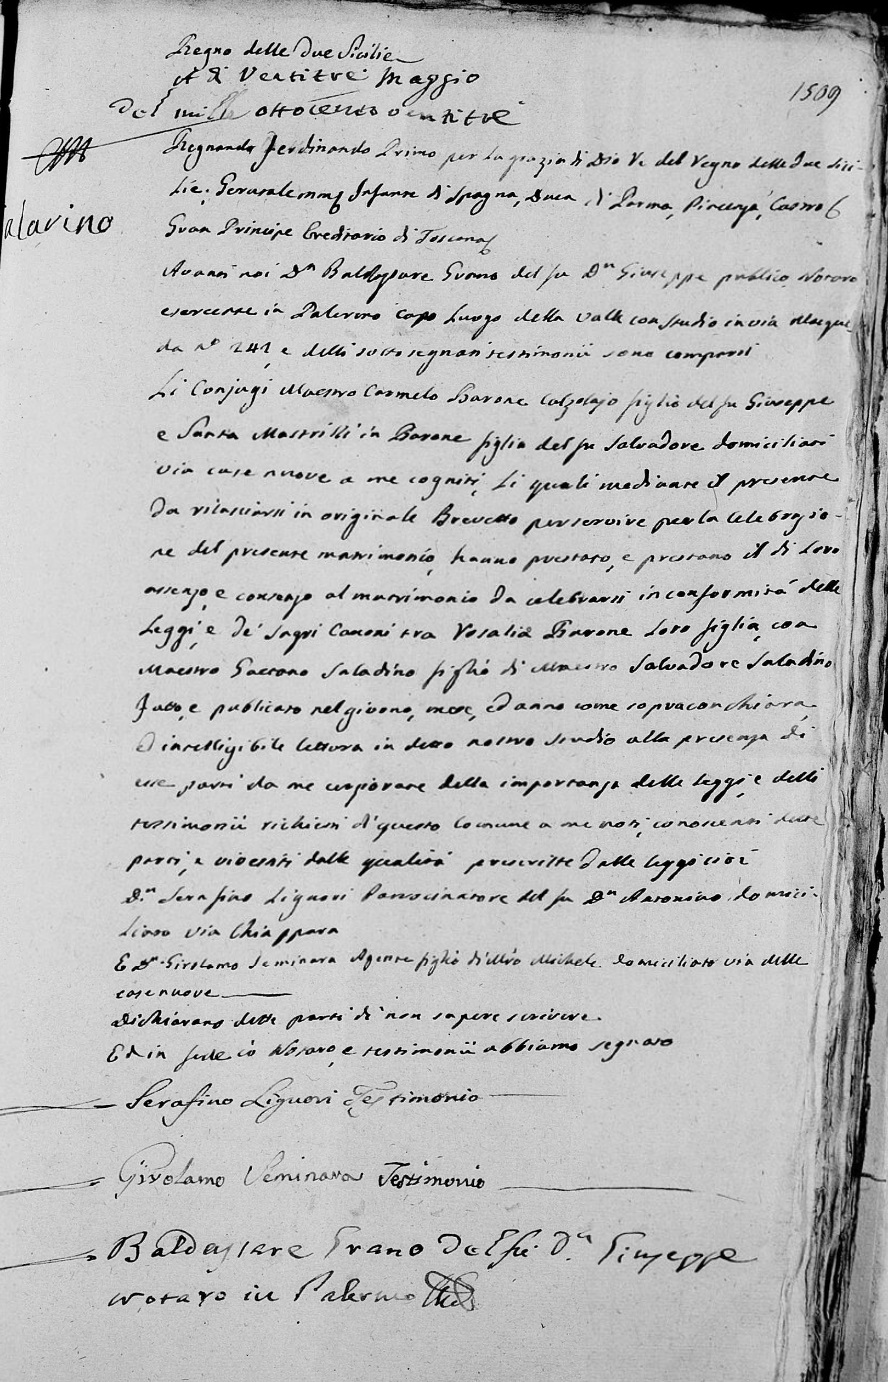 1509
Regno delle due Sicilie
A di Ventitre Maggio
Del mille ottocento ventitre
Regnando Ferdinando Primo per la grazia di Dio Re del Regno delle due Sici-
lie, Gerusalemme Infante di Spagna, Duca di Parma, Piacenza, Castro
Gran Principe Ereditario di Toscana
alavino
Avanti noi Dn Baldassare Grano del fu Dn Giuseppe publico Notaro
esercente in Palermo capo luogo della valle con studio in via Macque
da no 241, e delli sottosegnati testimonii sono comparsi
Li Conjugi Maestro Carmelo Barone Calzolajo figlio del fu Giuseppe
e Santa Mastrilli in Barone figlia del fu Salvadore domiciliati
via case nuove a me cogniti, li quali mediante il presente
da rilasciarsi in originale Brevetto per servire per la celebrazio-
ne del presente matrimonio, hanno prestato, e prestano il di loro
assenzo, e consenzo al matrimonio da celebrarsi in conformità delle
Leggi, e de' sagri Canoni tra Rosalia Barone loro figlia, con
Maestro Gaetano Saladino figlio di Maestro Salvadore Saladino
Fatto, e publicato nel giorno, mese, ed anno come sopra con chiara,
ed intelligibile lettura in detto nostro studio alla presenza di
esse parti da me cerziorate della importanza delle leggi, e delli
testimonii richiesti di questo Comune a me noti, conoscenti dette
parti, e viventi dalle qualità prescritte dalle leggi cioè
Dn Serafino Liguori Patrocinatore del fu Dn Antonino domici-
liato via Chiappara
E Dn Girolamo Seminara Agente figlio di Mro Michele domiciliato via delle
case nuove
Dichiarano dette parti di non sapere scrivere
Ed in fede io Notaro, e testimonii abbiamo segnato
Serafino Liguori Testimonio
Girolamo Seminara Testimonio
Baldassare Grano Del fu Dn Giuseppe
notaro in Palermo